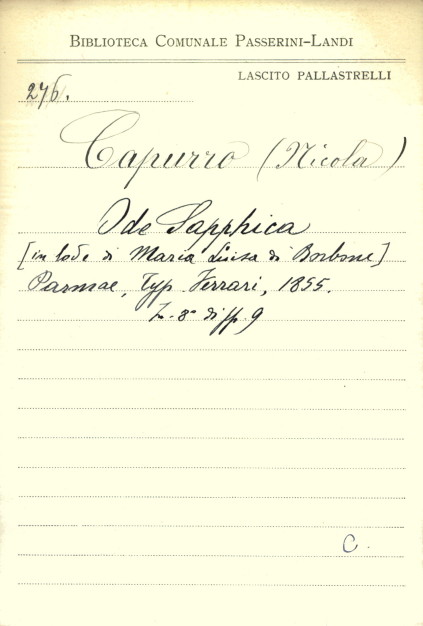 BIBLIOTECA COMUNALE PASSERINI-LANDI
LASCITO PALLASTRELLI
276.
Capurro (Nicola)
Ode Sapphica
[in lode di Maria Luisa di Borbone]
Parmae, Typ. Ferrari, 1855.
In-8° di pp. 9
C.